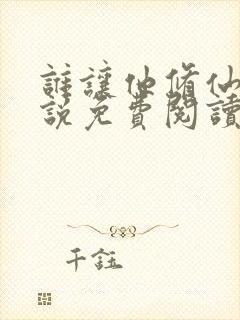 誰讓他脩仙
説免費閱讀
千鈺